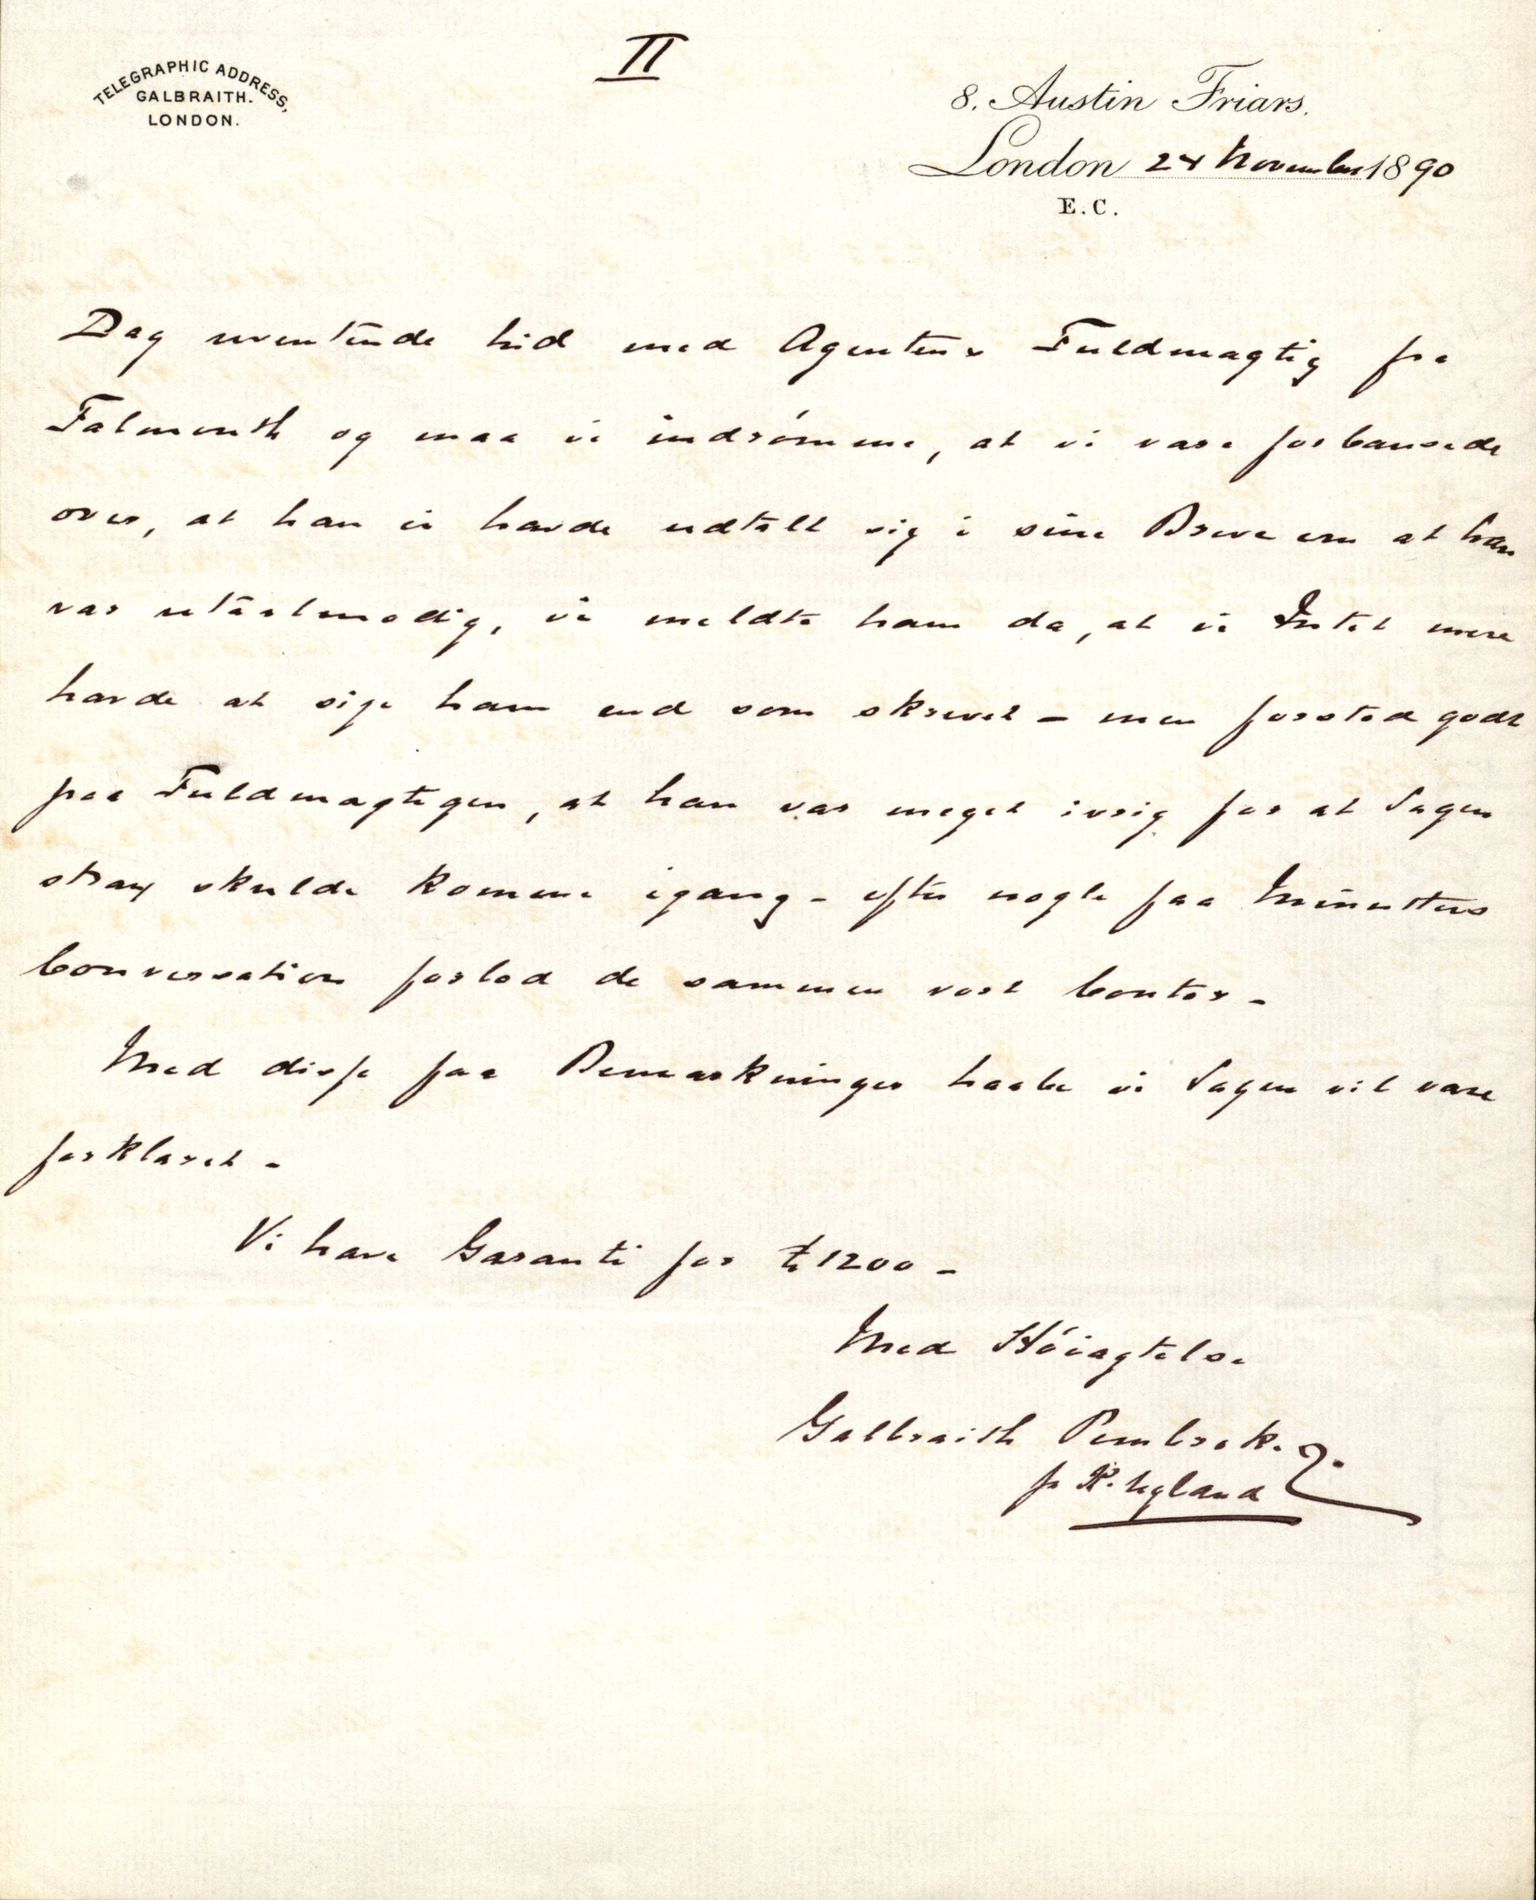 II
TELEGRAPHIC ADDRESS,
GALBRAITH.
LONDON.
8. Austin Friars.
London 24 November 1890
E.C.
Dag uventende hid med Agentens Fuldmagtig fra
Falmouth og maa vi indrömme, at vi vare forbausede
over, at han ei havde udtalt sig i sine Breve om at han
var utaalmodig, vi meldte ham da, at vi Intet mere
havde at sige ham end som skrevet - men forstod godt
paa Fuldmagtigen, at han var meget ivrig for at Sagen
strax skulde komme igang - efter nogle faa Minutters
Conversation forlod de sammen vort Contor -
Med disse faa Bemærkninger haabe vi Sagen vil være
forklaret -
Vi have Garanti for £1200 -
Med Höiagtelse
Galbraith Pembroke
p K. Ugland